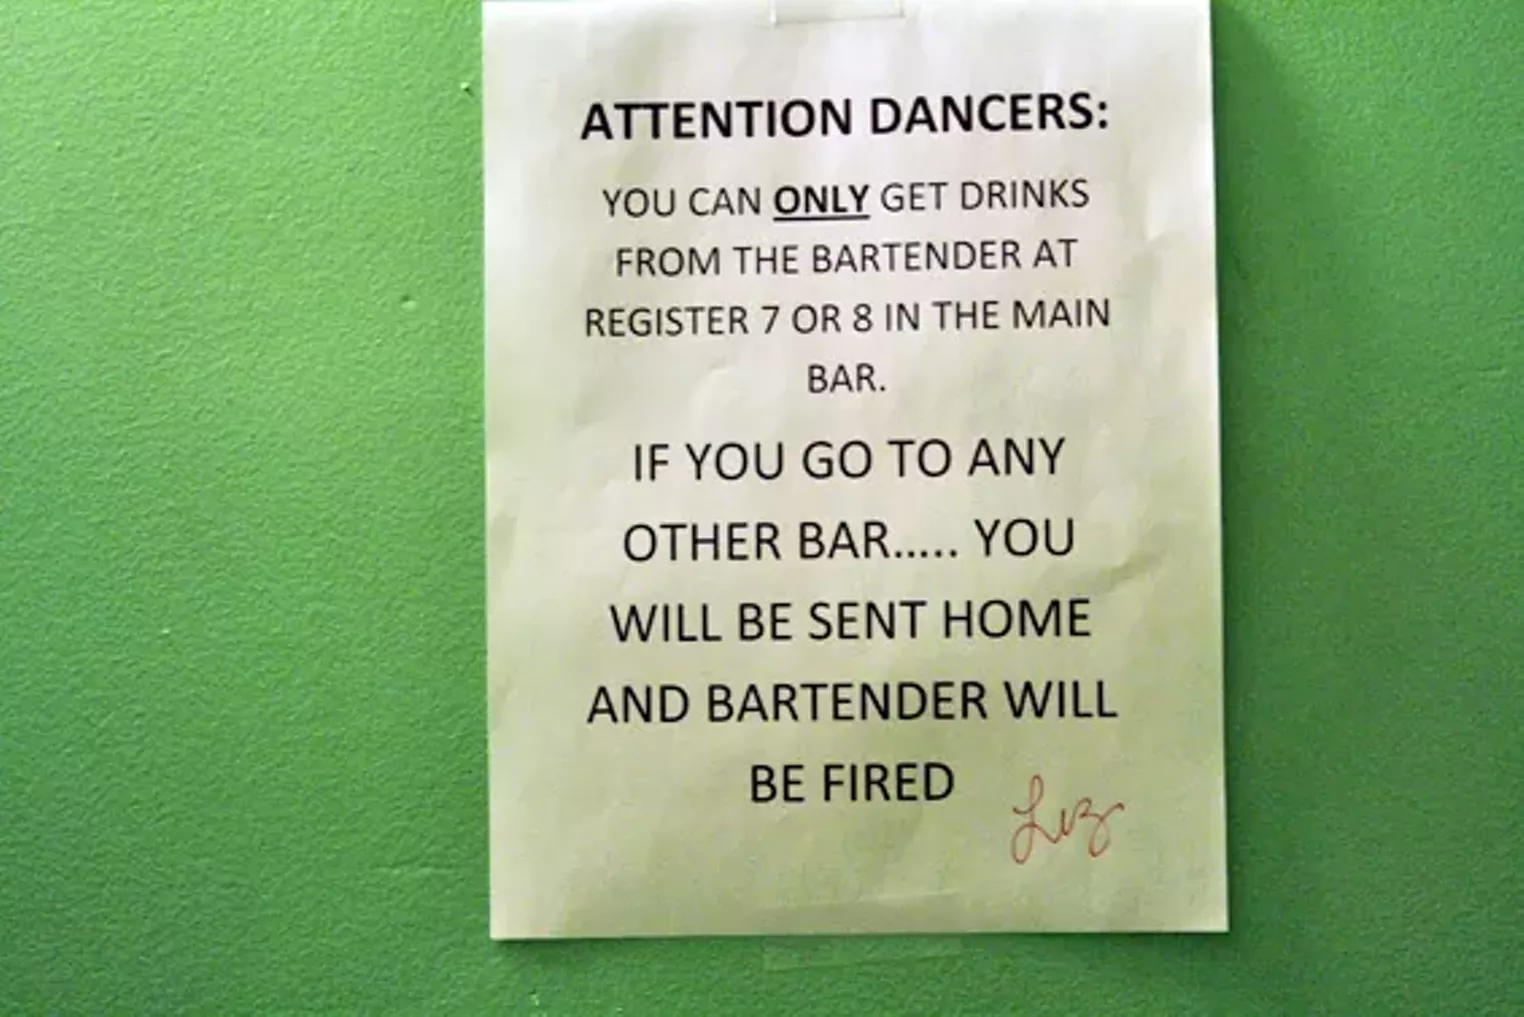 ATTENTION DANCERS:
YOU CAN ONLY GET DRINKS
FROM THE BARTENDER AT
REGISTER 7 OR 8 IN THE MAIN
BAR.
IF YOU GO TO ANY
OTHER BAR..... YOU
WILL BE SENT HOME
AND BARTENDER WILL
BE FIRED
Liz